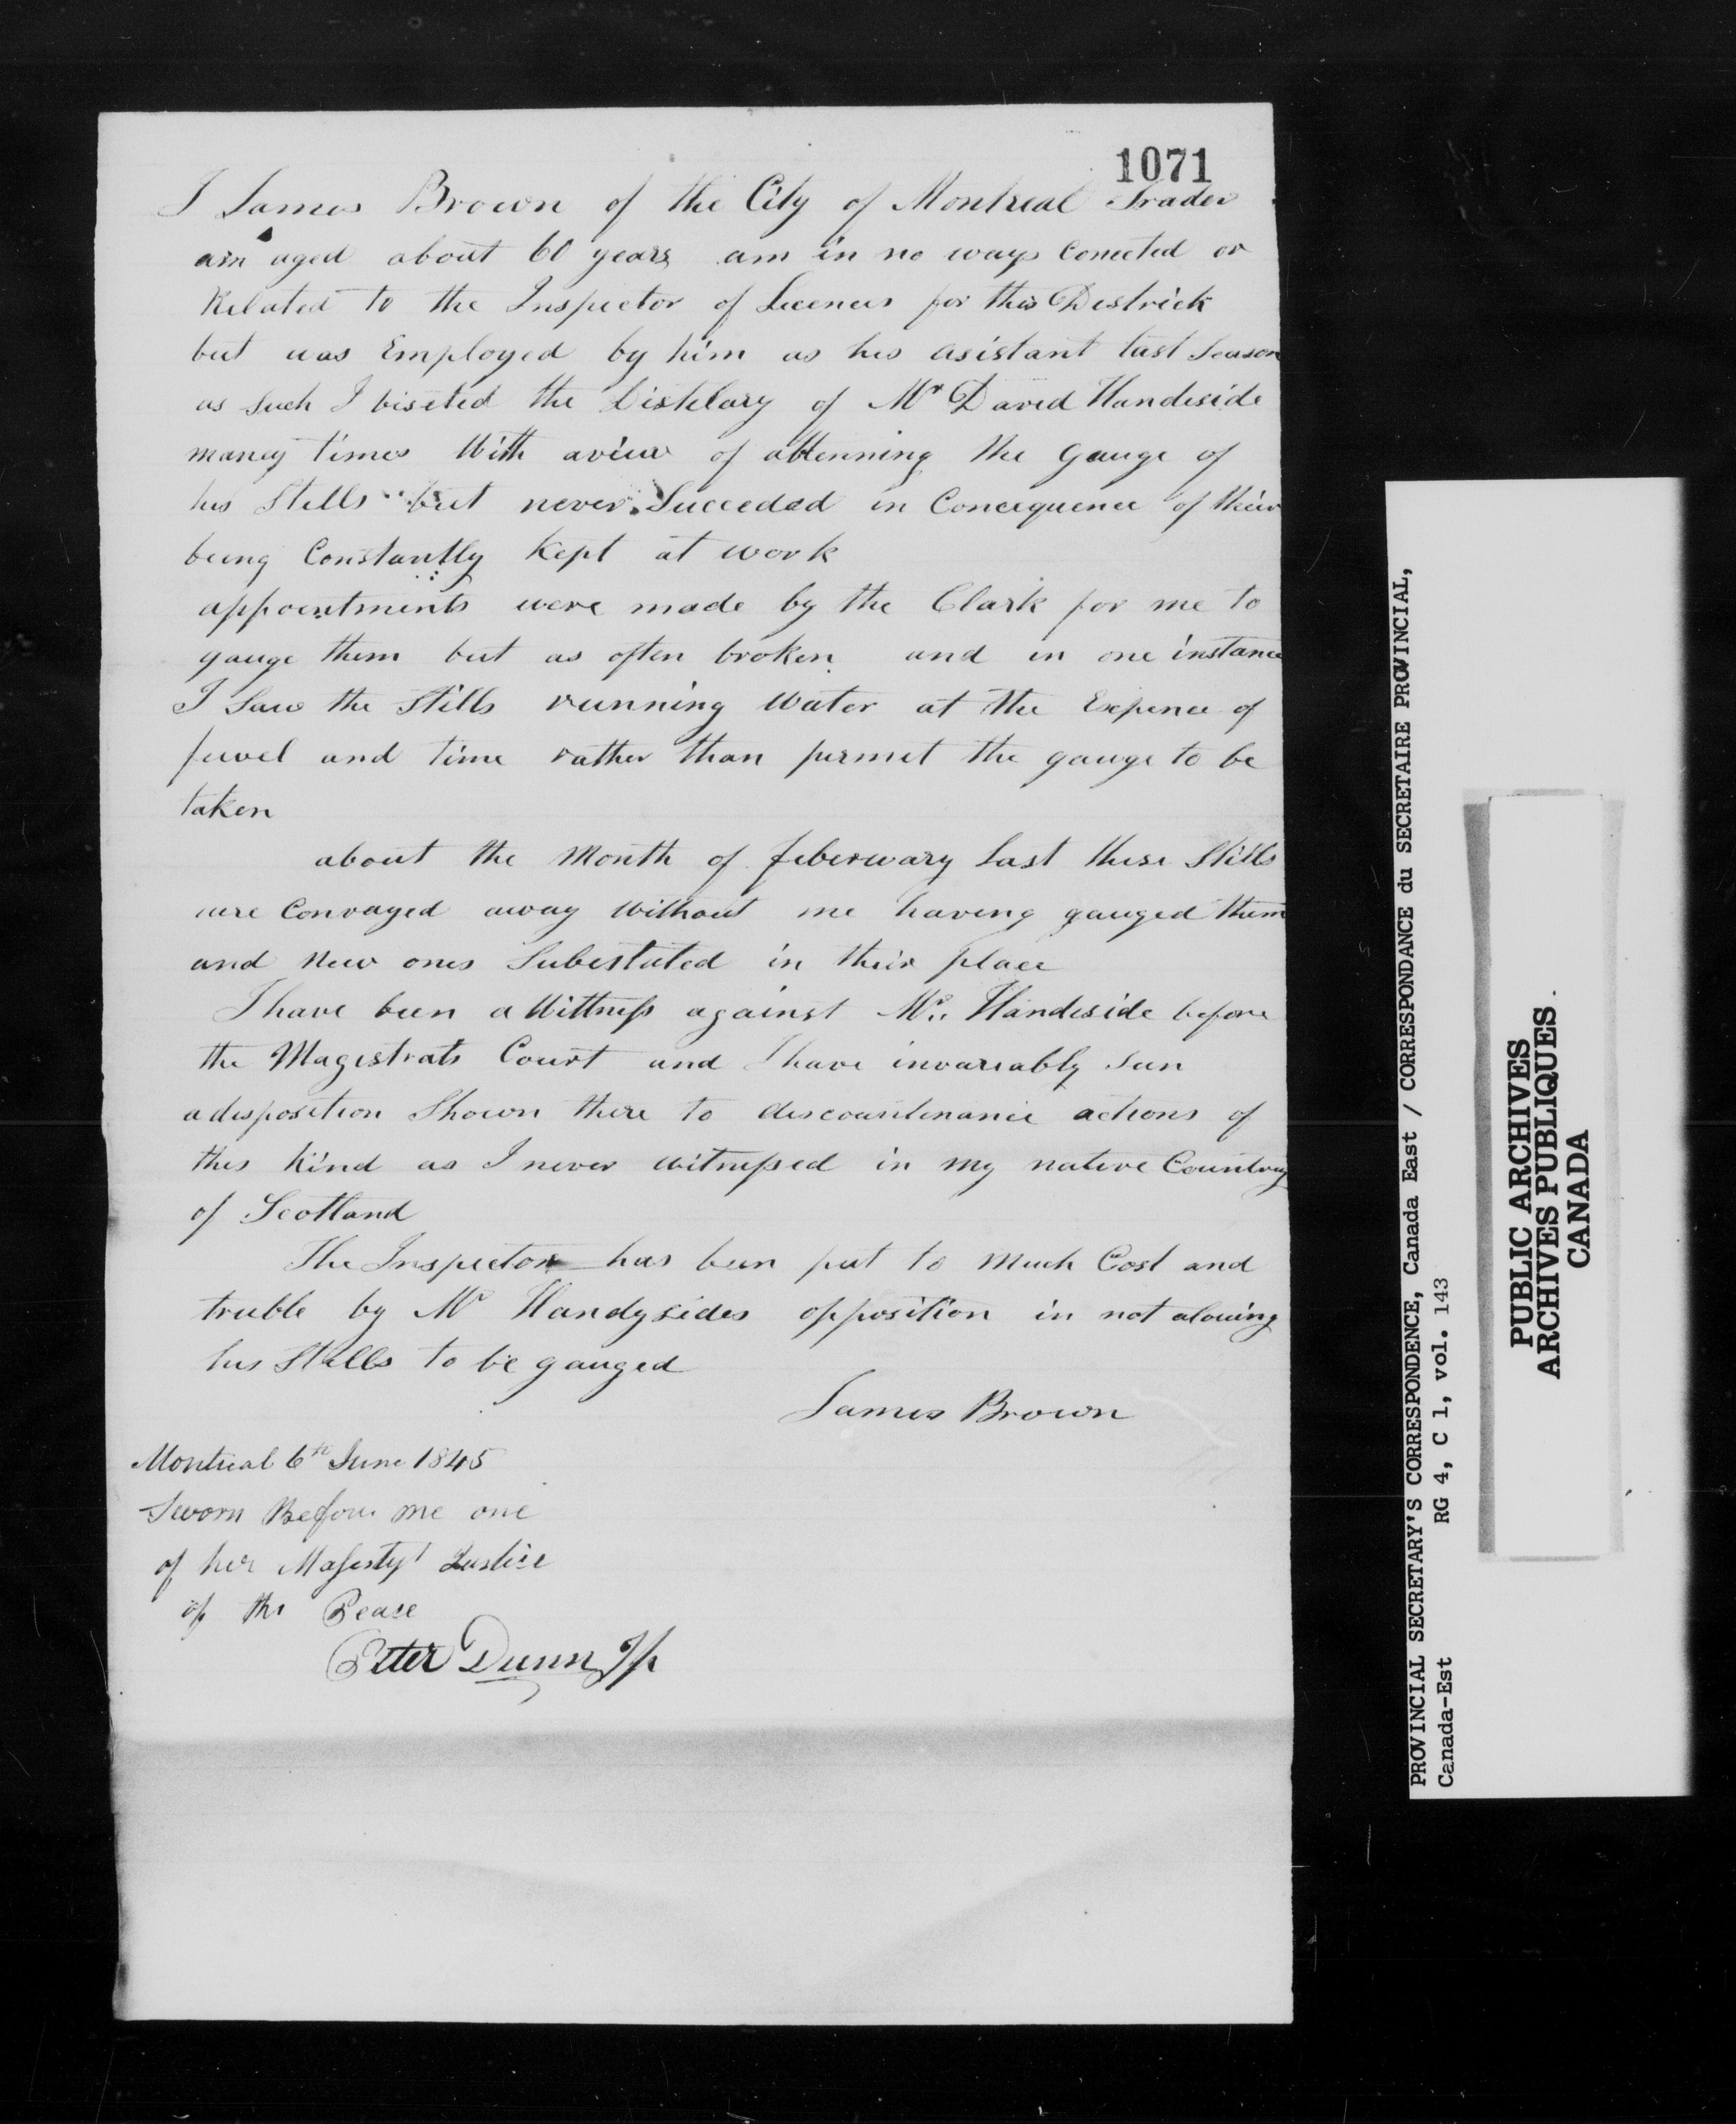 1071
I James Brown of the City of Montreal Trader
am aged about 60 years am in no ways conected or
Related to the Inspector of Licences for this Districk
but was Employed by him as his asistant last Season
as such I viseted the Distelary of Mr David Handeside
maney times With aview of attenning the gauge of
his Stills but never Succeeded in Concequence of their
being Constantly Kept at work
appointments were made by the Clark for me to
gauge them but as often broken and in one instance
I Saw the Stills running Water at the Expence of
fuvel and time rather than permet the gauge to be
taken
about the Month of feberwary last these Stills
ware Convayed away Without me having gauged them
and New ones Subestuted in their place
I have been a Wittness against Mr. Handeside before
the Magistrats Court and I have invareably seen
a desposition Shown there to descountenance actions of
this Kind as I never witnessed in my native Country
of Scotland
The Inspector has been put to Much Cost and
truble by Mr Handysides opposition in not alowing
his Stills to be gauged
James Brown
Montreal 6th June 1845
Sworn Before me one
of her Majesty's Justice
of the Peace
Peter Dunn Jp
PROVINCIAL SECRETARY'S CORRESPONDENCE, Canada East / CORRESPONDANCE du SECRETAIRE PROVINCIAL,
Canada-Est RG 4, C 1, vol. 143
PUBLIC ARCHIVES
ARCHIVES PUBLIQUES
CANADA